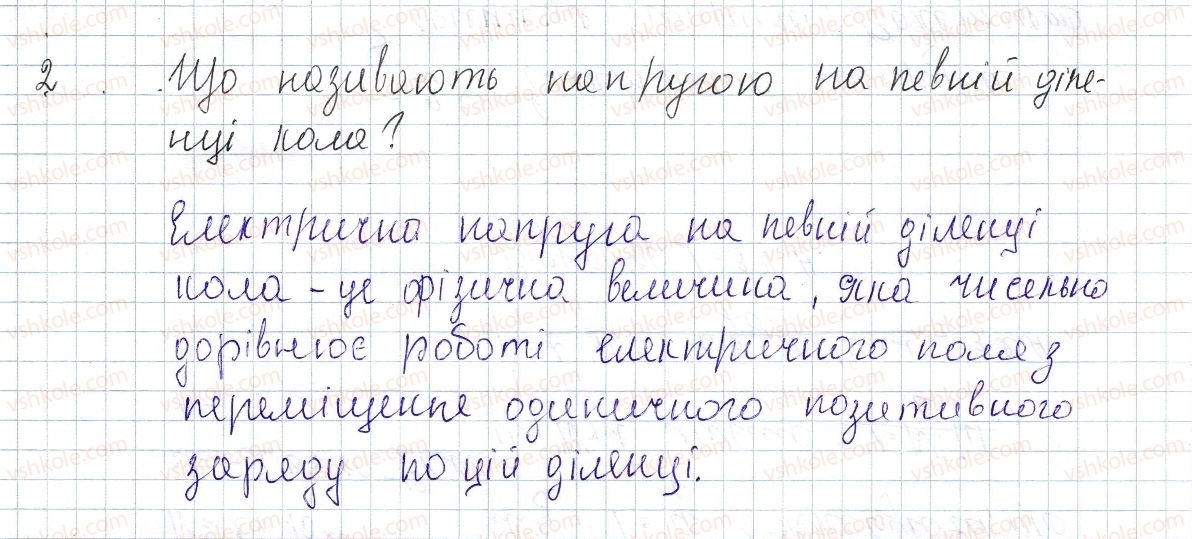 2. Що називають напругою на певній діле-
нці кола?
Електрична напруга на певній діленці
кола - це фізична величина, яка чисельно
дорівнює роботі електричного поля з
переміщення одиничного позитивного
заряду по цій діленці.